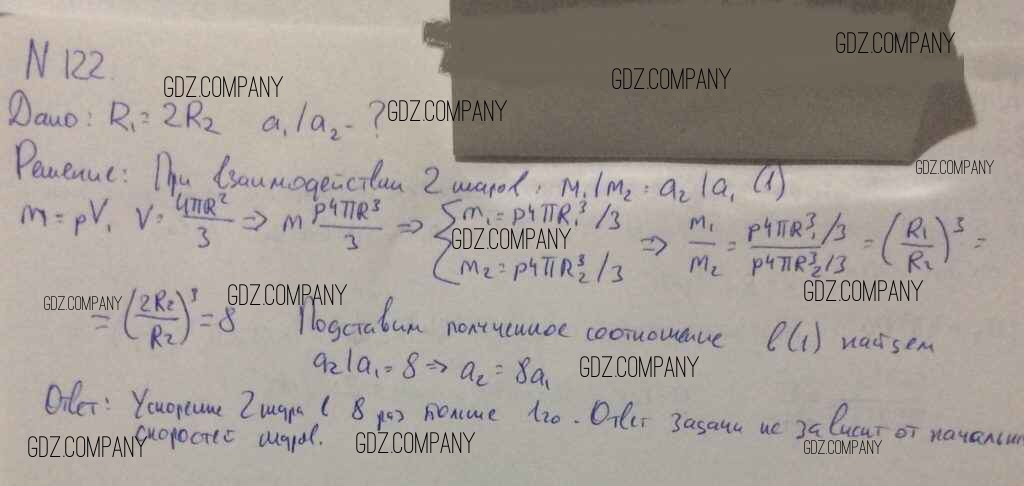 N 122.
GDZ.COMPANY
GDZ.COMPANY
GDZ.COMPANY
Дано: R₁ = 2R₂ a₁/a₂ - ?
GDZ.COMPANY
GDZ.COMPANY
Решение: При взаимодействии 2 шаров: m₁/m₂ = a₂/a₁ (1)
m = ρV, V = 4πR²/3 => m ρ4πR³/3 => { m₁ = ρ4πR₁³/3 m₂ = ρ4πR₂³/3 => m₁/m₂ = ρ4πR₁³/3 / ρ4πR₂³/3 = (R₁/R₂)³ =
GDZ.COMPANY
GDZ.COMPANY
GDZ.COMPANY
GDZ.COMPANY
= (2R₂/R₂)³ = 8 Подставим полученное соотношение в (1) найдем
a₂/a₁ = 8 => a₂ = 8a₁
GDZ.COMPANY
Ответ: Ускорение 2 шара в 8 раз больше 1го. Ответ задачи не зависит от начальн
скоростей шаров.
GDZ.COMPANY
GDZ.COMPANY
GDZ.COMPANY